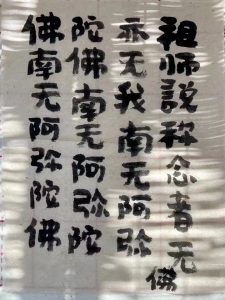 祖师說称念者无佛
亦无我南无阿弥
陀佛南无阿弥陀
佛南无阿弥陀佛